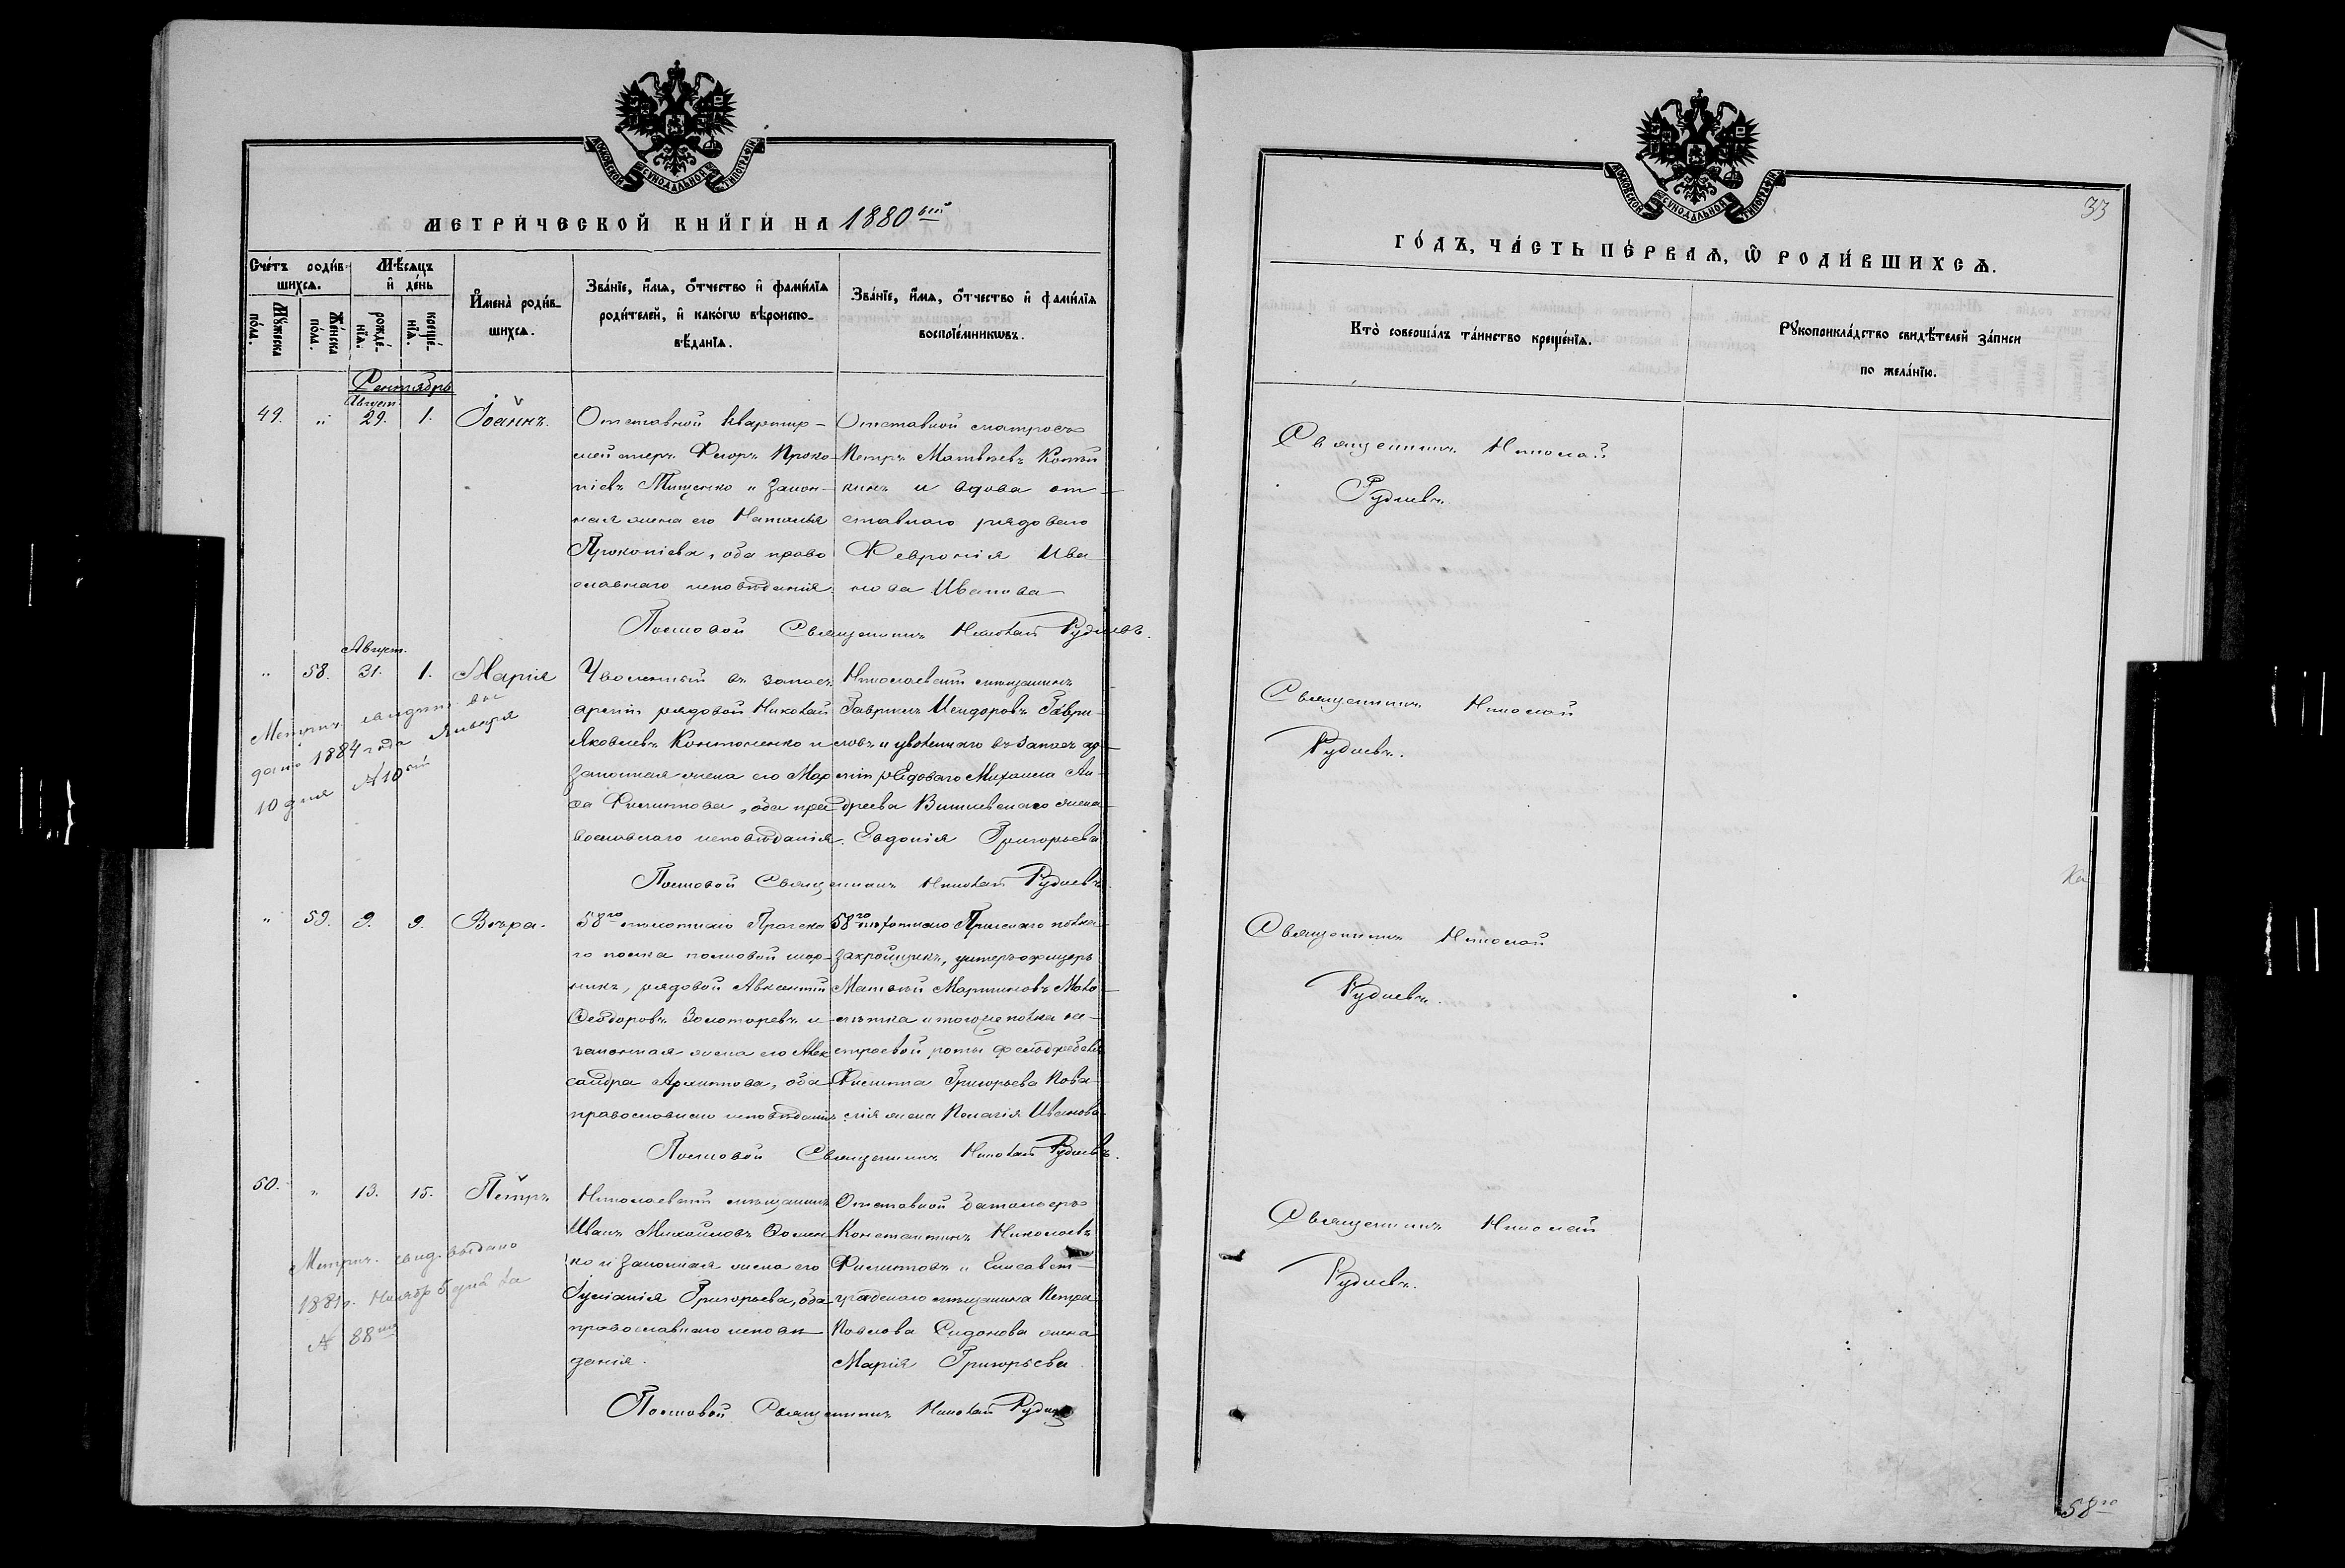 МОСКОВСКОЙ СѴНОДАЛЬНОЙ ТИПОГРАФІИ
МЕТРИ́ЧЕСКОЙ КНИ́ГИ НА 1880 ый
Сче́тъ роди́вшихсѧ.
Мѣ́сѧцъ и҆ де́нь
И҆мена̀ роди́вшихсѧ.
Зва́нїе, и҆́мѧ, ѻ҆́тчество и҆ фами́лїѧ
роди́телей, и҆ како́гѡ вѣроиспо-
вѣ́данїѧ.
Зва́нїе, и҆́мѧ, ѻ҆́тчество и҆ фами́лїѧ
воспрїе́мникѡвъ.
Мꙋ́жеска по́ла.
Же́нска по́ла.
рожде́нїѧ.
креще́нїѧ.
Сентябрь
49. " Август. 29. 1. Іоаннъ.
Отставной квартир-
мейстеръ Ѳеоръ Проко-
піевъ Тищенко и закон-
ная жена его Наталья
Прокопіева, оба право
славнаго исповѣданія.
Отставной матросъ
Петръ Матвѣевъ
кинъ и вдова от-
ставнаго рядоваго
Февронія Ива
нова Иванова
Полковой Священникъ Николай Рудневъ.
" 58. Август. 31. 1. Марія
Уволенный въ запасъ
арміи рядовой Николай
Яковлевъ Кононенко и
законная жена его Мар
ѳа Филиппова, оба пра
вославнаго исповѣданія.
Николаевскій мѣщанинъ
Гавріилъ Исидоровъ Гаври-
ловъ и уволеннаго въ запасъ ар-
міи рядоваго Михаила Ан-
дреева Вишневскаго жена
Евдокія Григорьева
Полковой Священникъ Николай Рудневъ
Метрич. свидѣт. вы
дано 1884 года Января
10 дня № 10 ый
" 59. 9. 9. Вѣра.
58 го пѣхотнаго Прагска
го полка полковой шор-
никъ, рядовой Авксентій
Ѳеодоровъ Золоторевъ и
законная жена его Алек
сандра Архипова, оба
православнаго исповѣданія
58 го пѣхотнаго Прагскаго полка
закройщикъ, унтеръ-офицеръ
Матвѣй Мартиновъ
и того же полка не-
строевой роты фельдфебеля
Филиппа Григорьева
жена Пелагія Иванова
Полковой Священникъ Николай Рудневъ.
50. " 13. 15. Петръ
Николаевскій мѣщанинъ
Иванъ Михайловъ Ѳомен
ко и законная жена его
Іуліанія Григорьева, оба
православнаго исповѣ
данія.
Отставной баталеръ
Константинъ Николаевъ
Филиповъ и Елисавет-
градскаго мѣщанина Петра
Павлова Сидонова жена
Марія Григорьева
Метрич. свид. выдано
1881 г. Ноябр 5 дня за
№ 88 мъ
Полковой Священникъ Николай Рудневъ
МОСКОВСКОЙ СѴНОДАЛЬНОЙ ТИПОГРАФІИ
33
ГО́ДЪ, ЧА́СТЬ ПЕ́РВАѦ, Ѽ РОДИ́ВШИХСѦ.
Кто̀ соверша́лъ та́инство креще́нїѧ.
Рꙋкоприкла́дство свидѣ́телей за́писи
по жела́нїю.
Священникъ Николай
Рудневъ.
Священникъ Николай
Рудневъ.
Священникъ Николай
Рудневъ.
Священникъ Николай
Рудневъ.
58 го